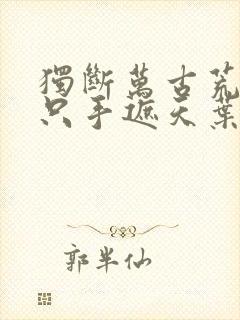 獨斷萬古荒
只手遮天葉
郭半仙